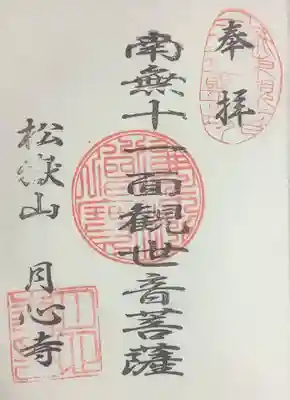 奉拝
南無十一面觀世音菩薩
松嶽山 月心寺